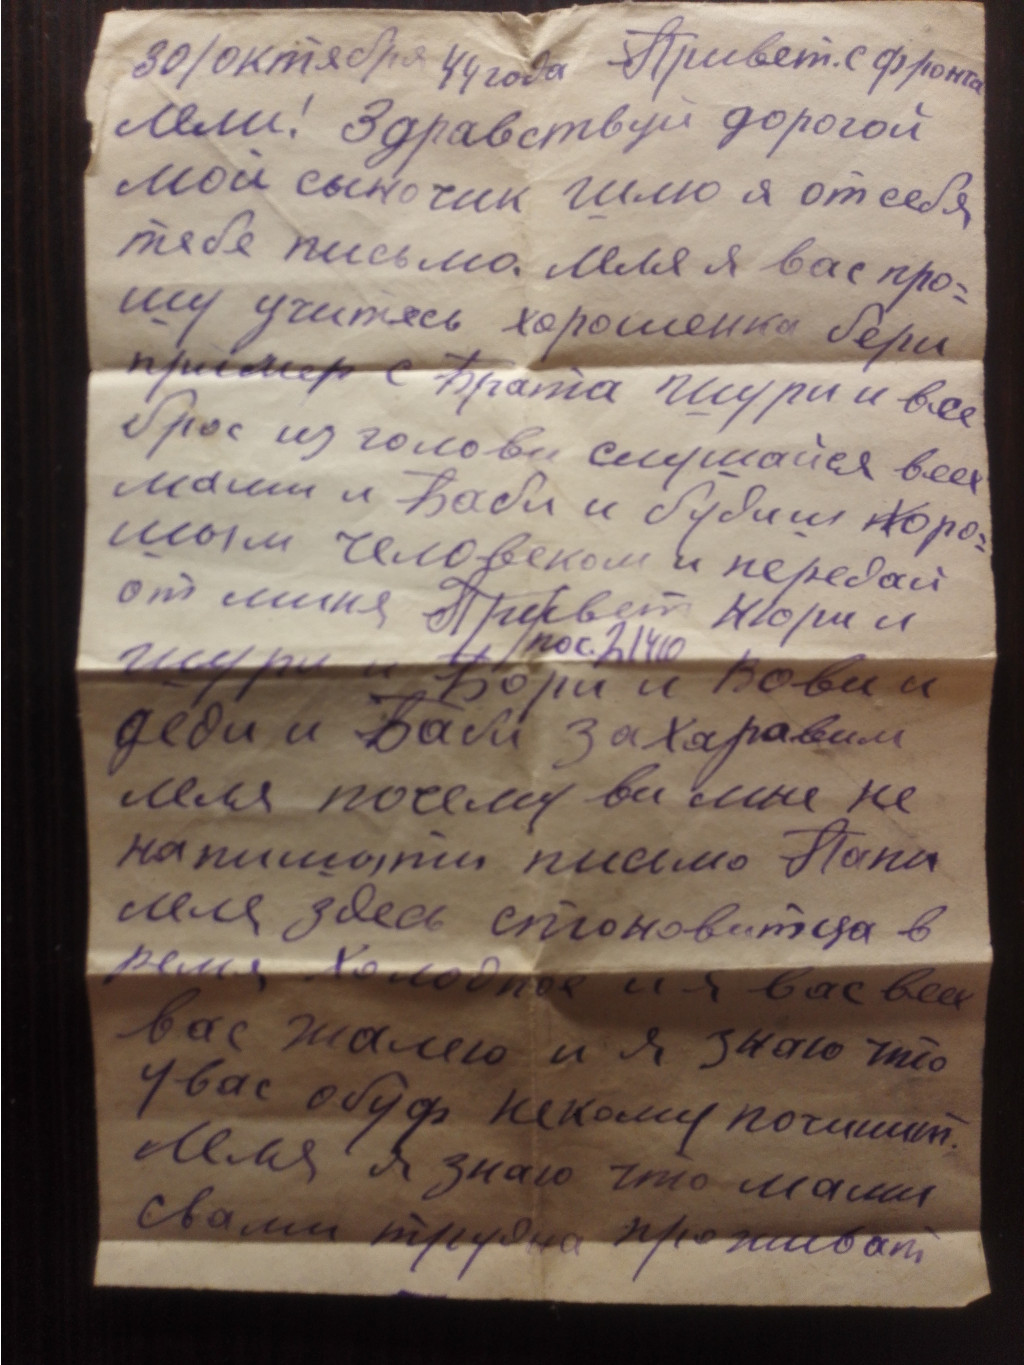 30/октября 44 года Привет с фронта
Лели! Здравствуй дорогой
мой сыночик шлю я от себя
тебе письмо. Леля я вас про=
шу учитесь хорошенка бери
пример с Брата Шури и все
брос из голови слушайся всех
мами и Баби и будиш хоро=
шым человеком и передай
от миня Привет Нюри и
пос. 21410
Шури и Бори и Вови и
деди и Баби Захаравим
Леля почему ви мне не
напишити письмо Папи
Леля здесь становитца в
ремя холодное и я вас всех
вас жалею и я знаю что
у вас обуф некому починит.
Леля я знаю что мами
свами трудна проживат